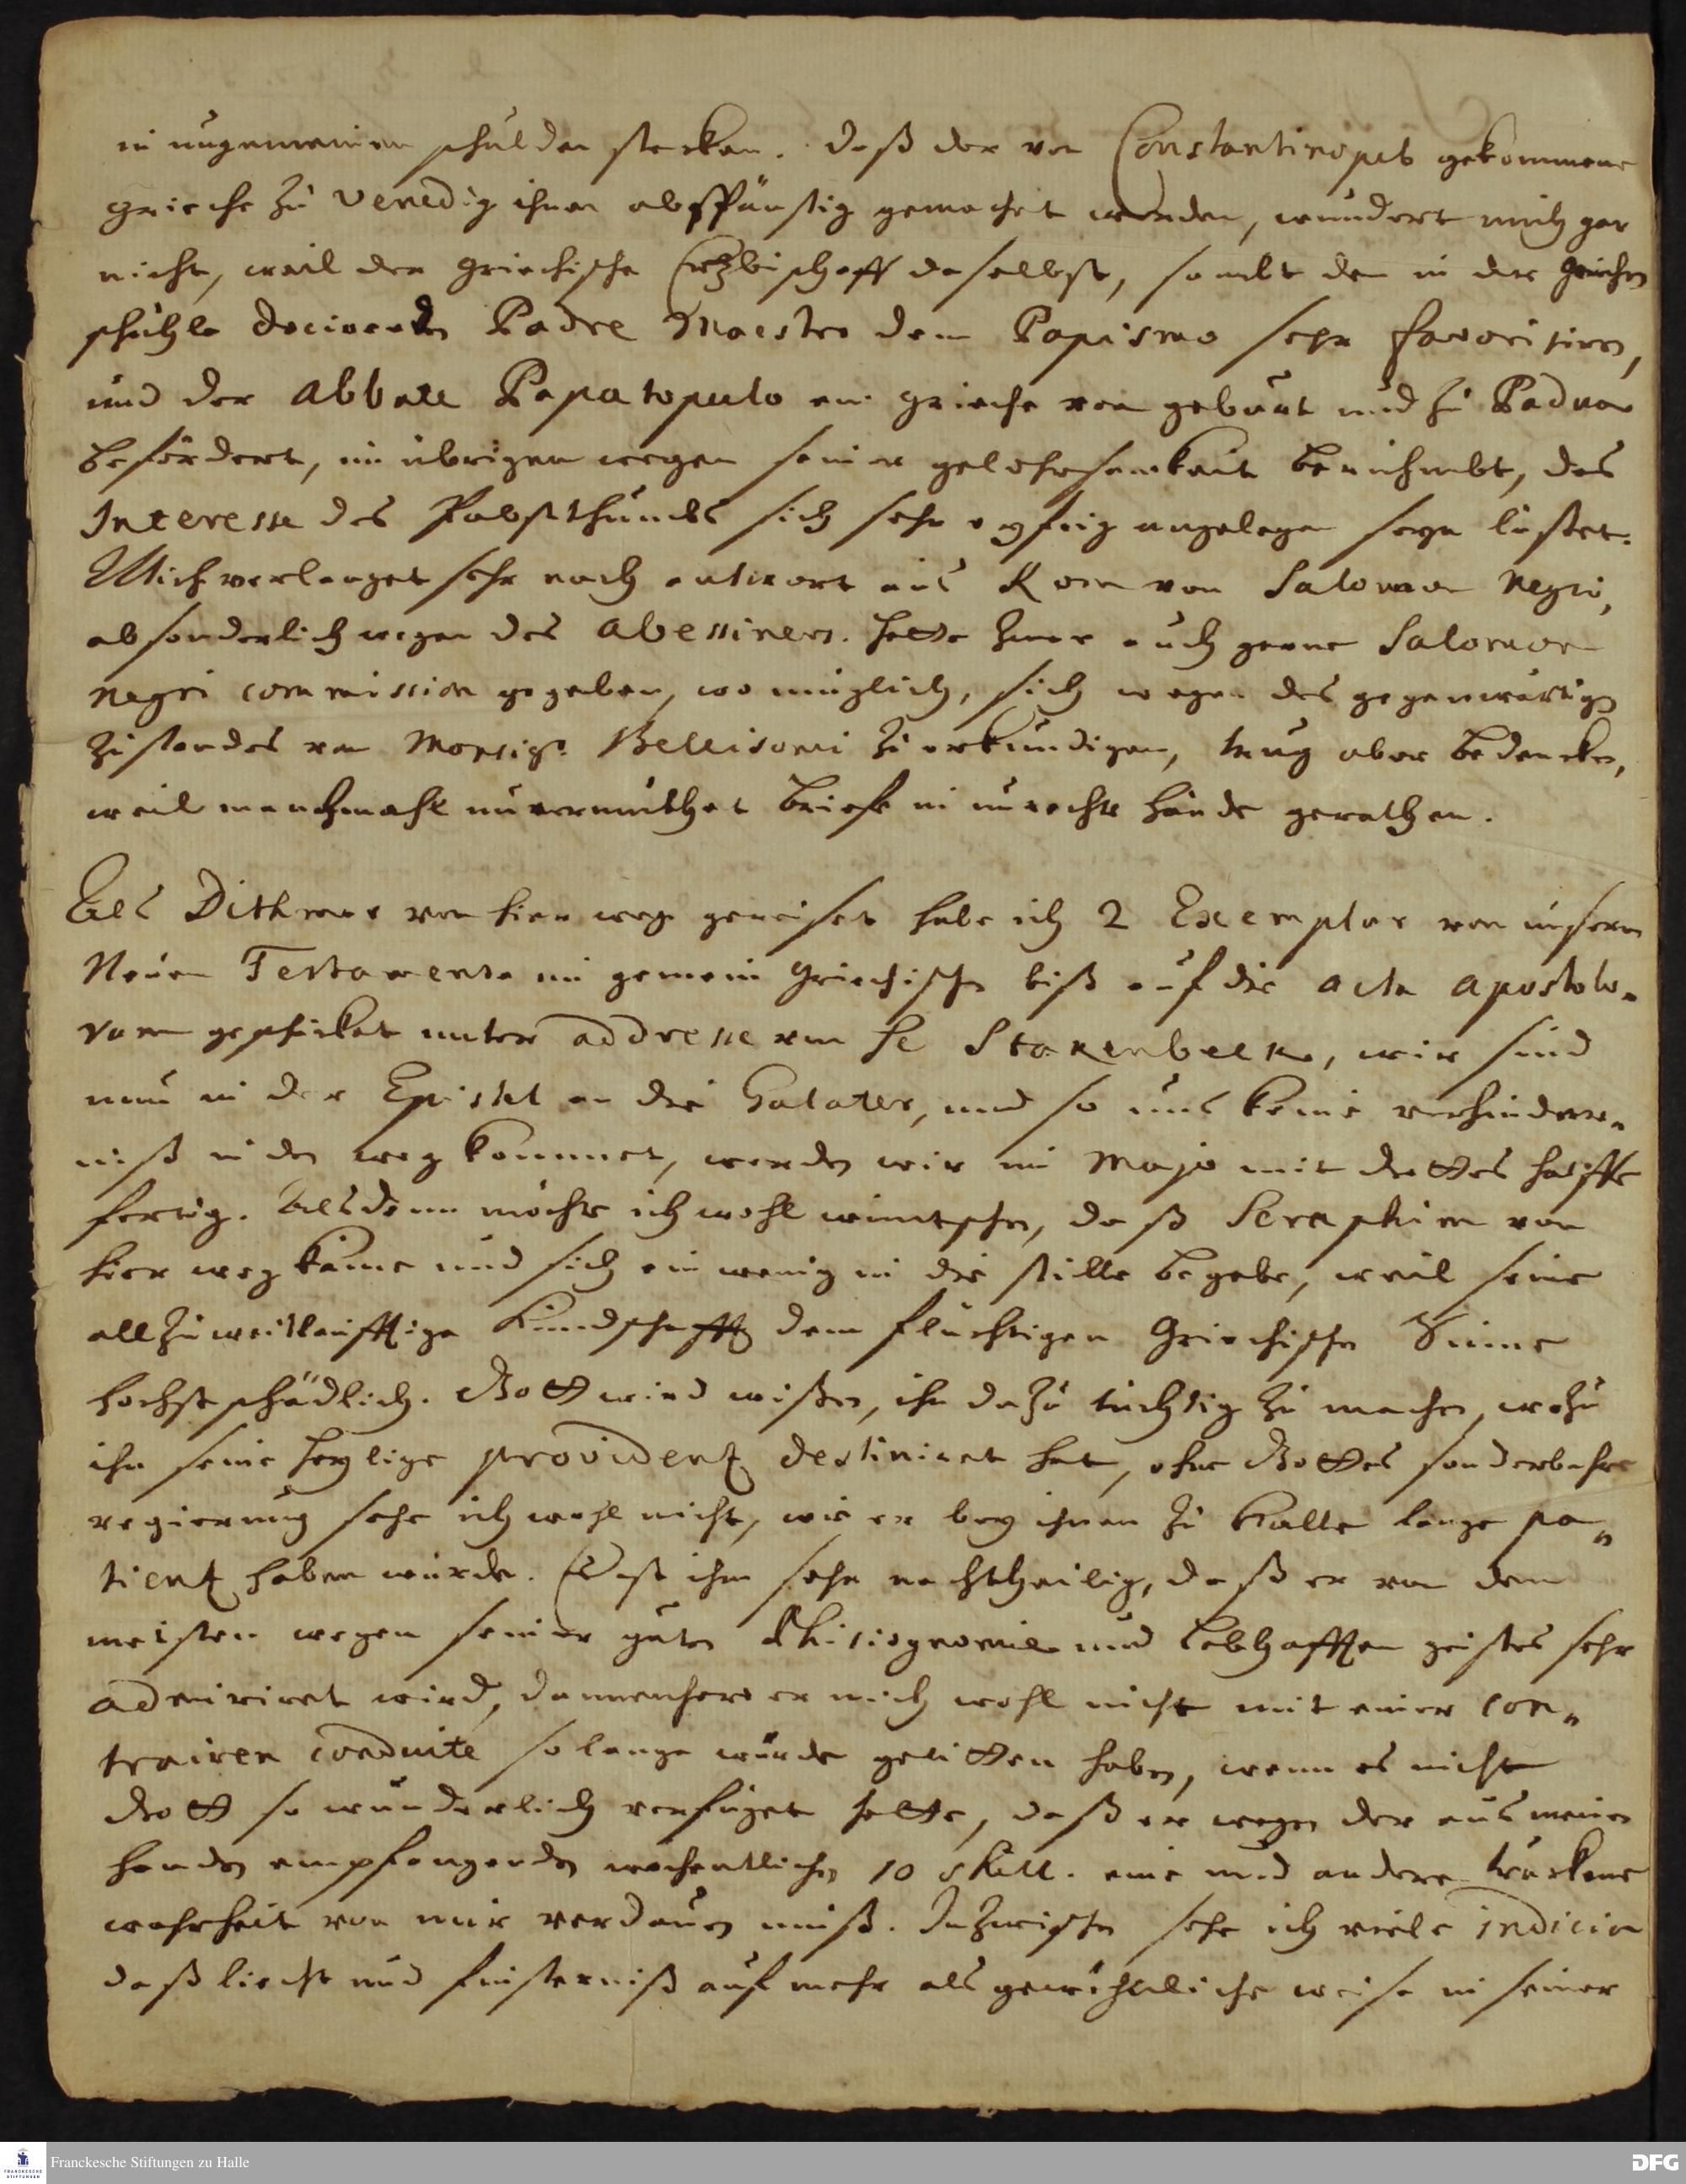 in ungemeinen schulden stecken. daß der von Constantinopel gekommene
grieche zu Venedig ihnen abspänstig gemachet worden, wundert mich gar
nicht, weil der griechische Ertzbischoff daselbst, sambt dem in der griechen
schuhle docirenden Padre Maestro dem Papismo sehr favorisiren,
und der Abbate Papatopulo ein grieche von geburt und zu Padua
befördert, im übrigen wegen seiner gelehrsamkeit berühmbt, das
Interesse des Pabstthumbs sich sehr eyfrig angelegen seyn lässet.
Mich verlanget sehr nach antwort aus Rom von Salomon Negri,
absonderlich wegen des Abessiners. hette zwar auch gerne Salomon
Negri commission gegeben, wo müglich, sich wegen des gegenwärtigen
zustandes von Monsigr. Bellisomi zu erkundigen, trug aber bedencken,
weil manchmahl unvermuthet briefe in unrechte hände gerathen.
Als Dithmar von hier weg gereiset habe ich 2 Exemplar von unserm
Neuen Testamente in gemein Griechischen biß auf die acta apostolo-
rum geschicket unter addresse von He Stakenbeck, wir sind
nun in der Epistel an die Galater, und so uns keine verhinder-
niß in den weg kommet, werden wir im Majo mit Gottes hülffe
fertig. Alsdann möchte ich wohl wüntschen, daß Seraphim von
hier weg käme und sich ein wenig in die stille begebe, weil seine
allzu weitläufftige Kundschafft dem flüchtigen Griechischen Sinne
höchst schädlich. Gott wird wißen, ihn dazu tüchtig zu machen, wozu
ihn seine heylige providentz destiniret hat, ohne Gottes sonderbahre
regierung sehe ich wohl nicht, wie er bey ihnen zu Halle lange pa-
tientz haben würde. Es ist ihm sehr nachtheilig, daß er von den
meisten wegen seiner guten Phisiognomie und lebhafften geistes sehr
admiriret wird, dannenhero er mich wohl nicht mit einer con-
trairen conduite so lange würde gelitten haben, wenn es nicht
Gott so wunderlich verfüget hette, daß er wegen der aus meinen
handen empfangenden wöchentlichen 10 skill. eine und andere trückene
wahrheit von mir verdauen muß. Inzwischen sehe ich viele indicia
daß liecht und finsterniß auf mehr als gewöhnliche weise in seiner
Franckesche Stiftungen zu Halle
FRANCKESCHE
STIFTUNGEN
DFG